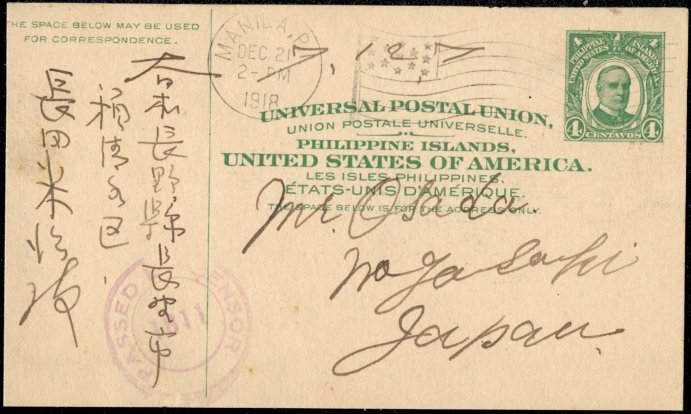 THE SPACE BELOW MAY BE USED
FOR CORRESPONDENCE.
MANILA, P.I.
DEC 21
2-PM
1918
PHILIPPINE ISLANDS
UNITED STATES OF AMERICA
4 CENTAVOS 4
UNIVERSAL POSTAL UNION,
UNION POSTALE UNIVERSELLE.
PHILIPPINE ISLANDS,
UNITED STATES OF AMERICA.
LES ISLES PHILIPPINES.
ÉTATS-UNIS D'AMÉRIQUE.
THE SPACE BELOW IS FOR THE ADDRESS ONLY.
Mr. Osada.
Nagasaki
Japan.
日本長野県長野市
長田
PASSED CENSOR
1811